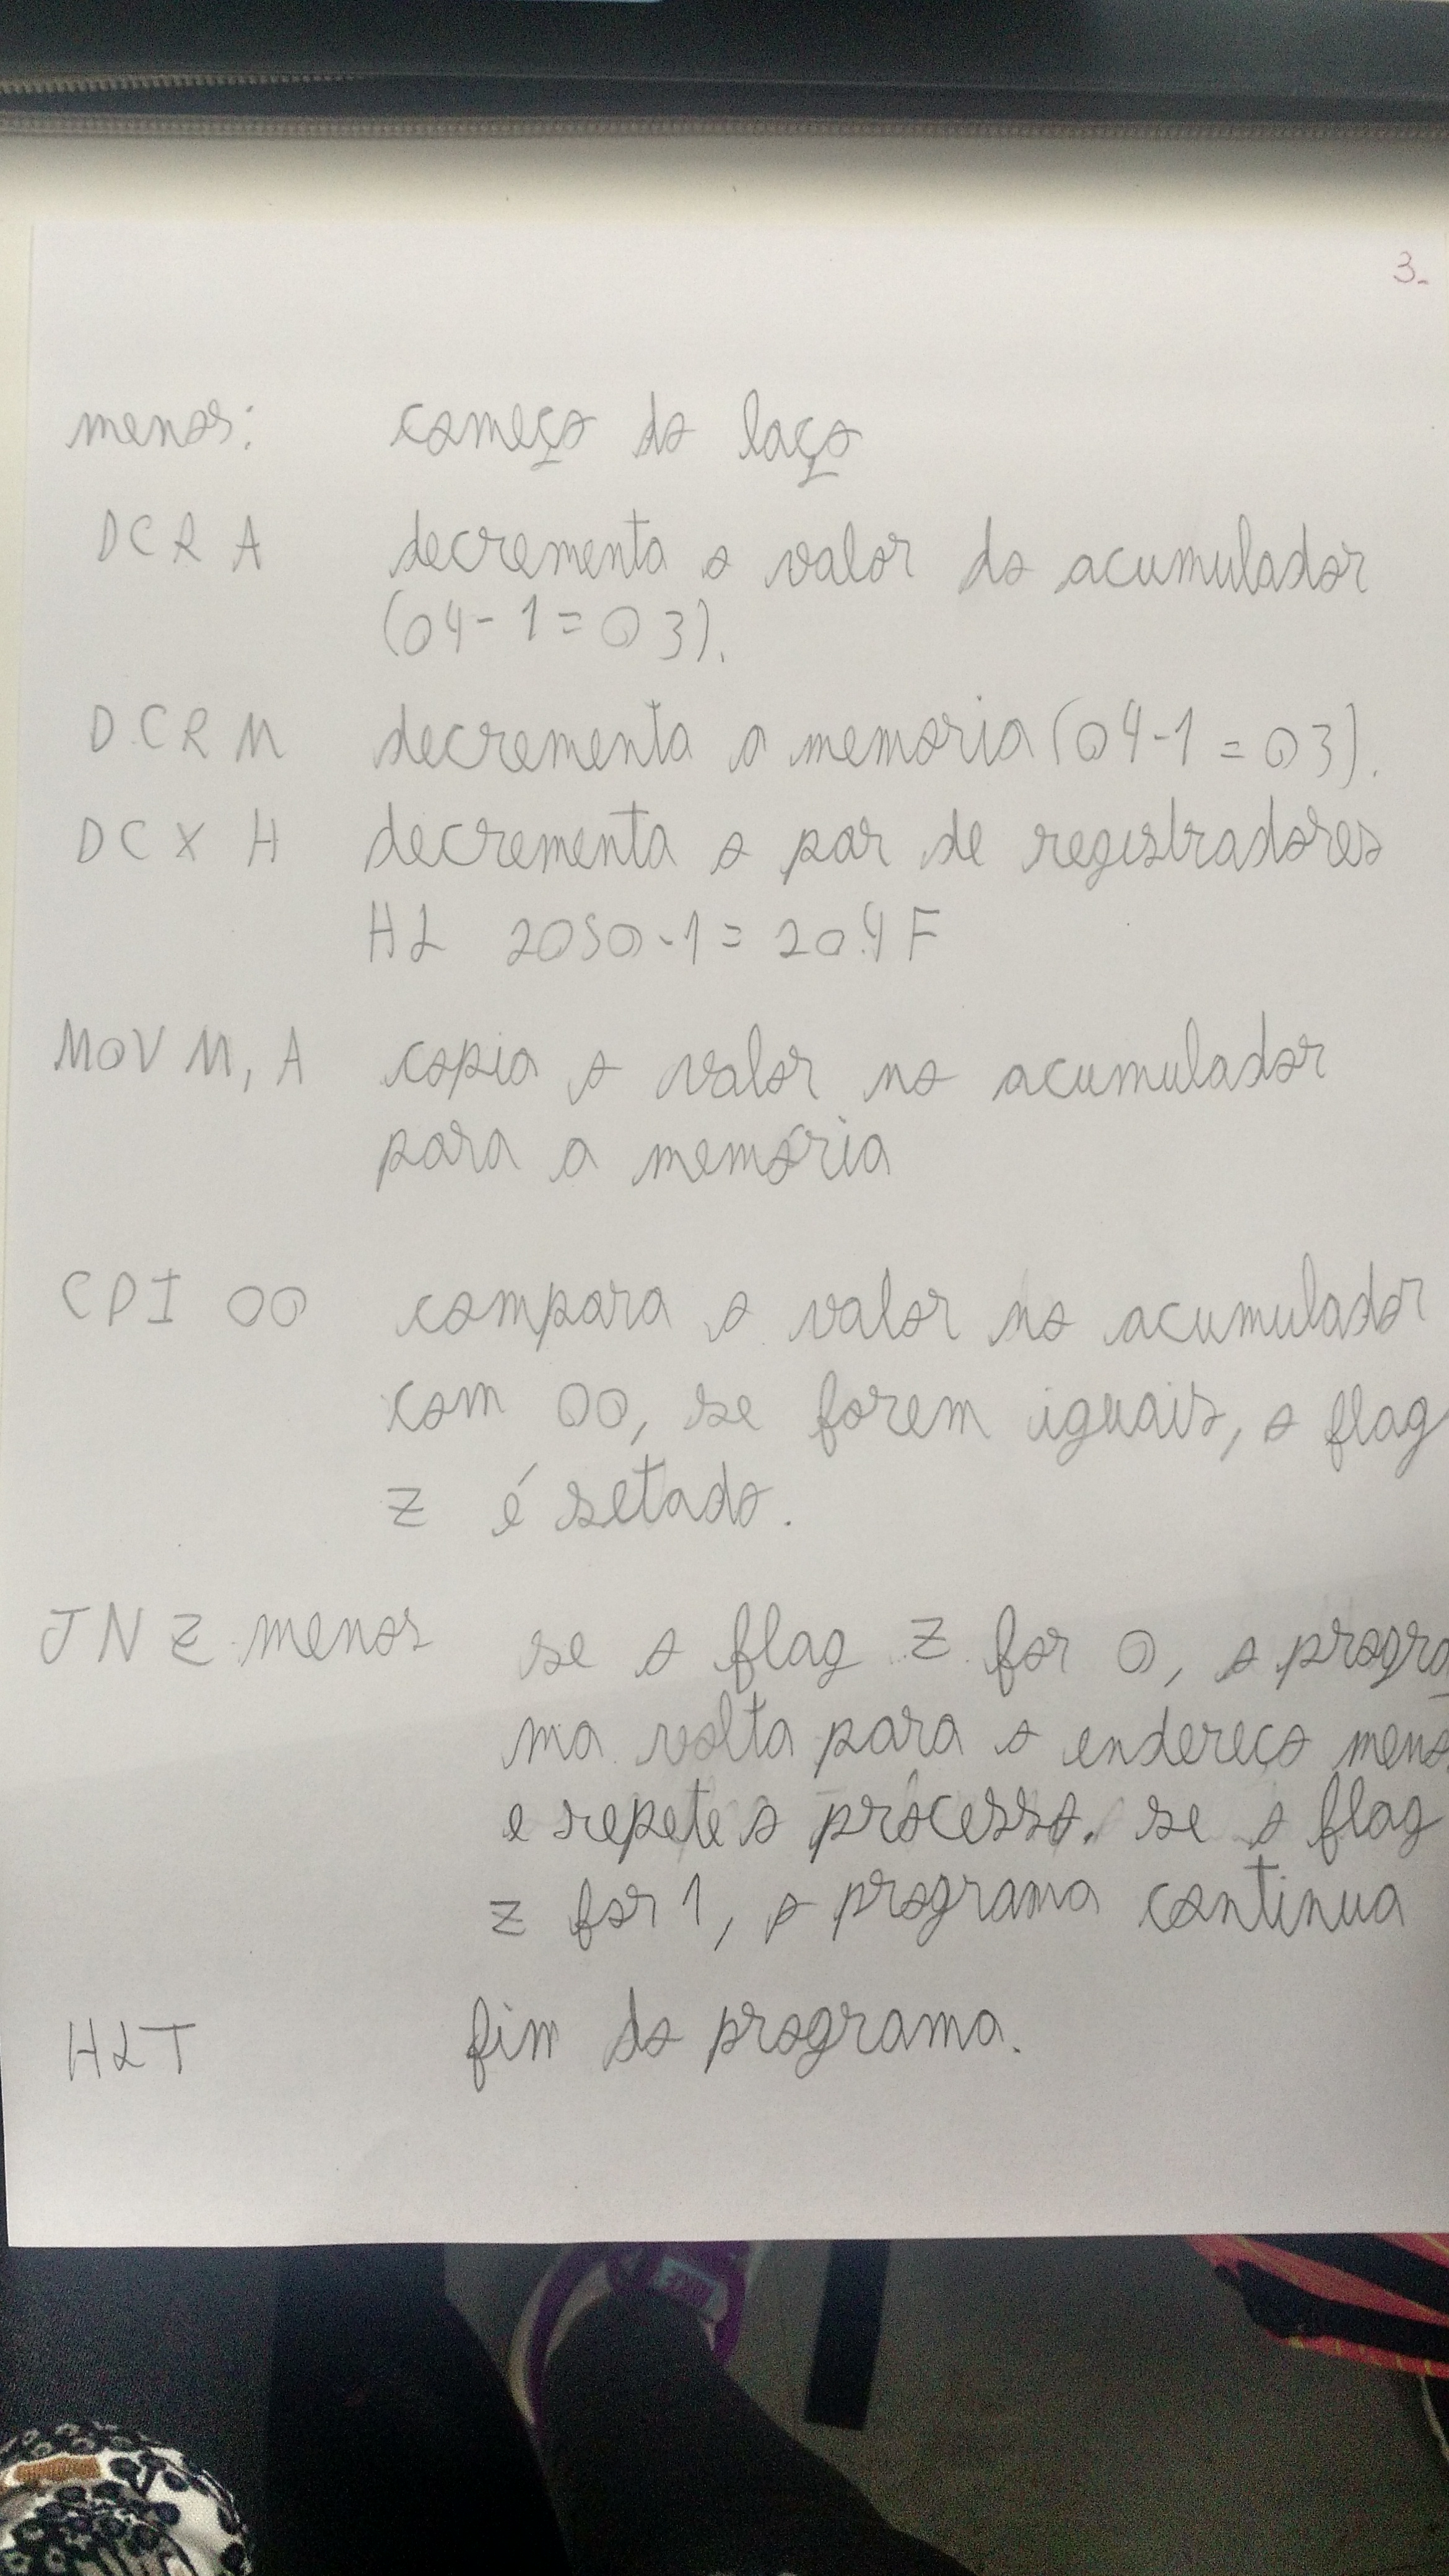 3.
menos: começo do laço
DCR A decrementa o valor do acumulador
(04-1=03).
DCR M decrementa a memoria (04-1=03).
DCX H decrementa o par de registradores
HL 2050-1=204F
MOV M, A copia o valor no acumulador
para a memória
CPI 00 compara o valor no acumulador
com 00, se forem iguais, o flag
z é setado.
JNZ menos se o flag z for 0, o progra
ma volta para o endereço menos
e repete o processo. se o flag
z for 1, o programa continua
HLT fim do programa.